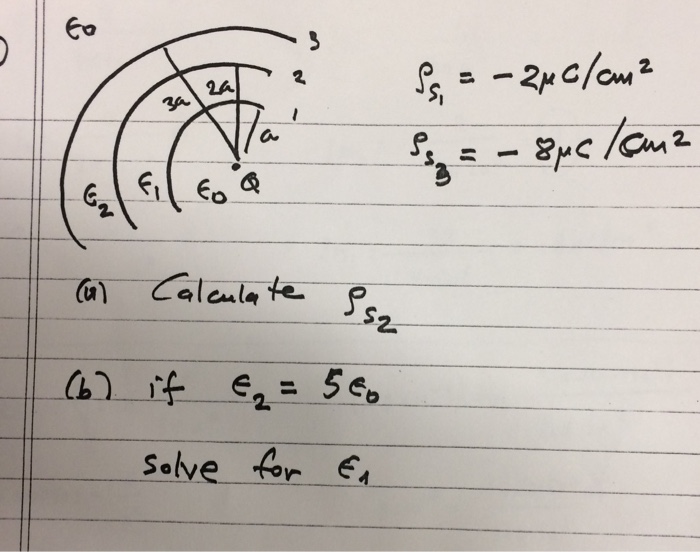 ϵ0 3
2
3a 2a 1
a
ϵ2 ϵ1 ϵ0 Q
ρs1 = -2μC/cm²
ρs3 = - 8μC/cm²
(a) Calculate ρs2
(b) if ϵ2 = 5ϵ0
solve for ϵ1